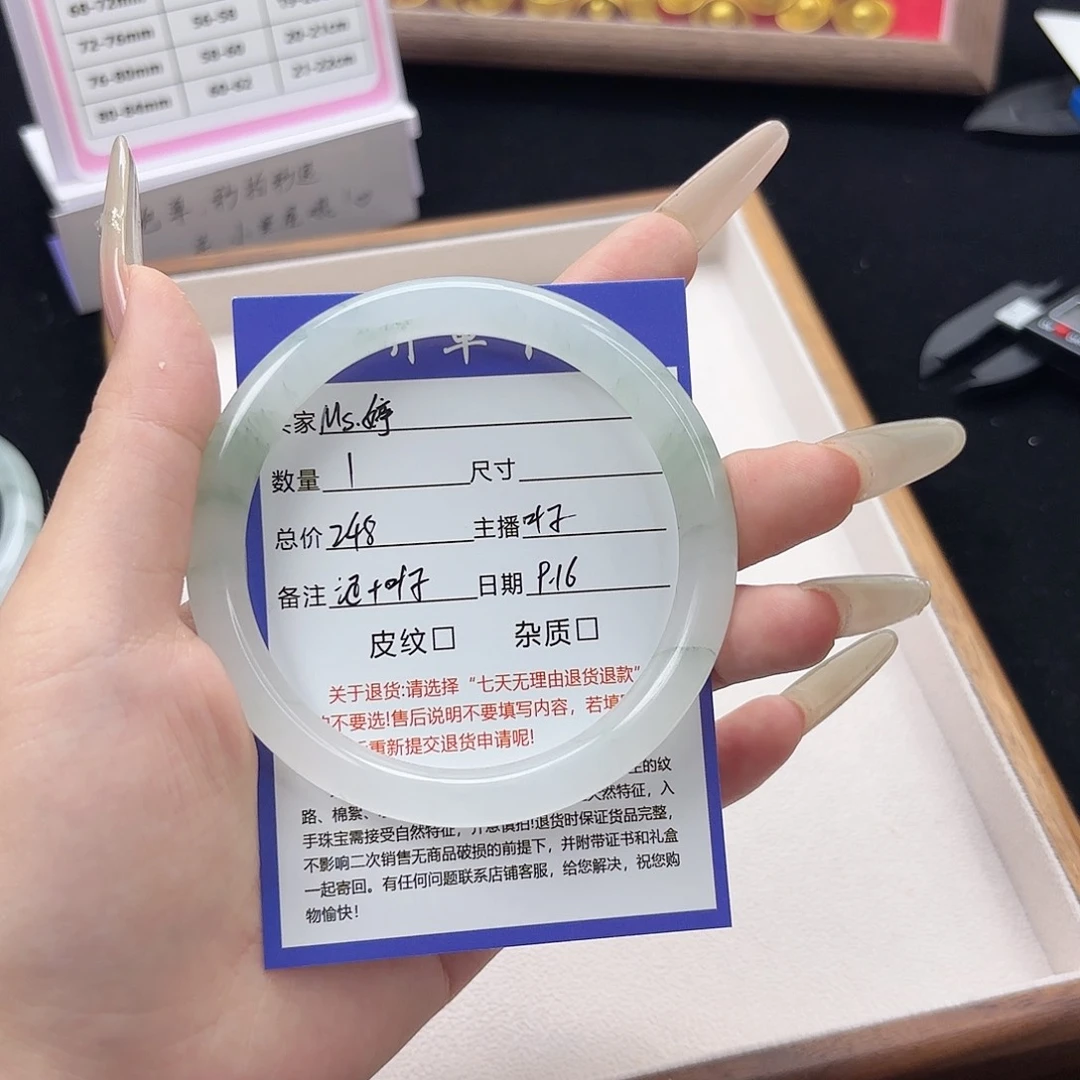 68-72mm
72-76mm 56-58
76-80mm 58-60 20-21cm
80-84mm 60-62 21-22cm
单
家 Ms.婷
数量 1 尺寸
总价 248 主播 叶子
备注 日期 9.16
皮纹□ 杂质□
关于退货:请选择“七天无理由退货退款”
不要选!售后说明不要填写内容，若填
重新提交退货申请呢!
的纹
路、棉絮、 天然特征，入
手珠宝需接受自然特征，介意慎拍!退货时保证货品完整，
不影响二次销售无商品破损的前提下，并附带证书和礼盒
一起寄回。有任何问题联系店铺客服，给您解决，祝您购
物愉快!